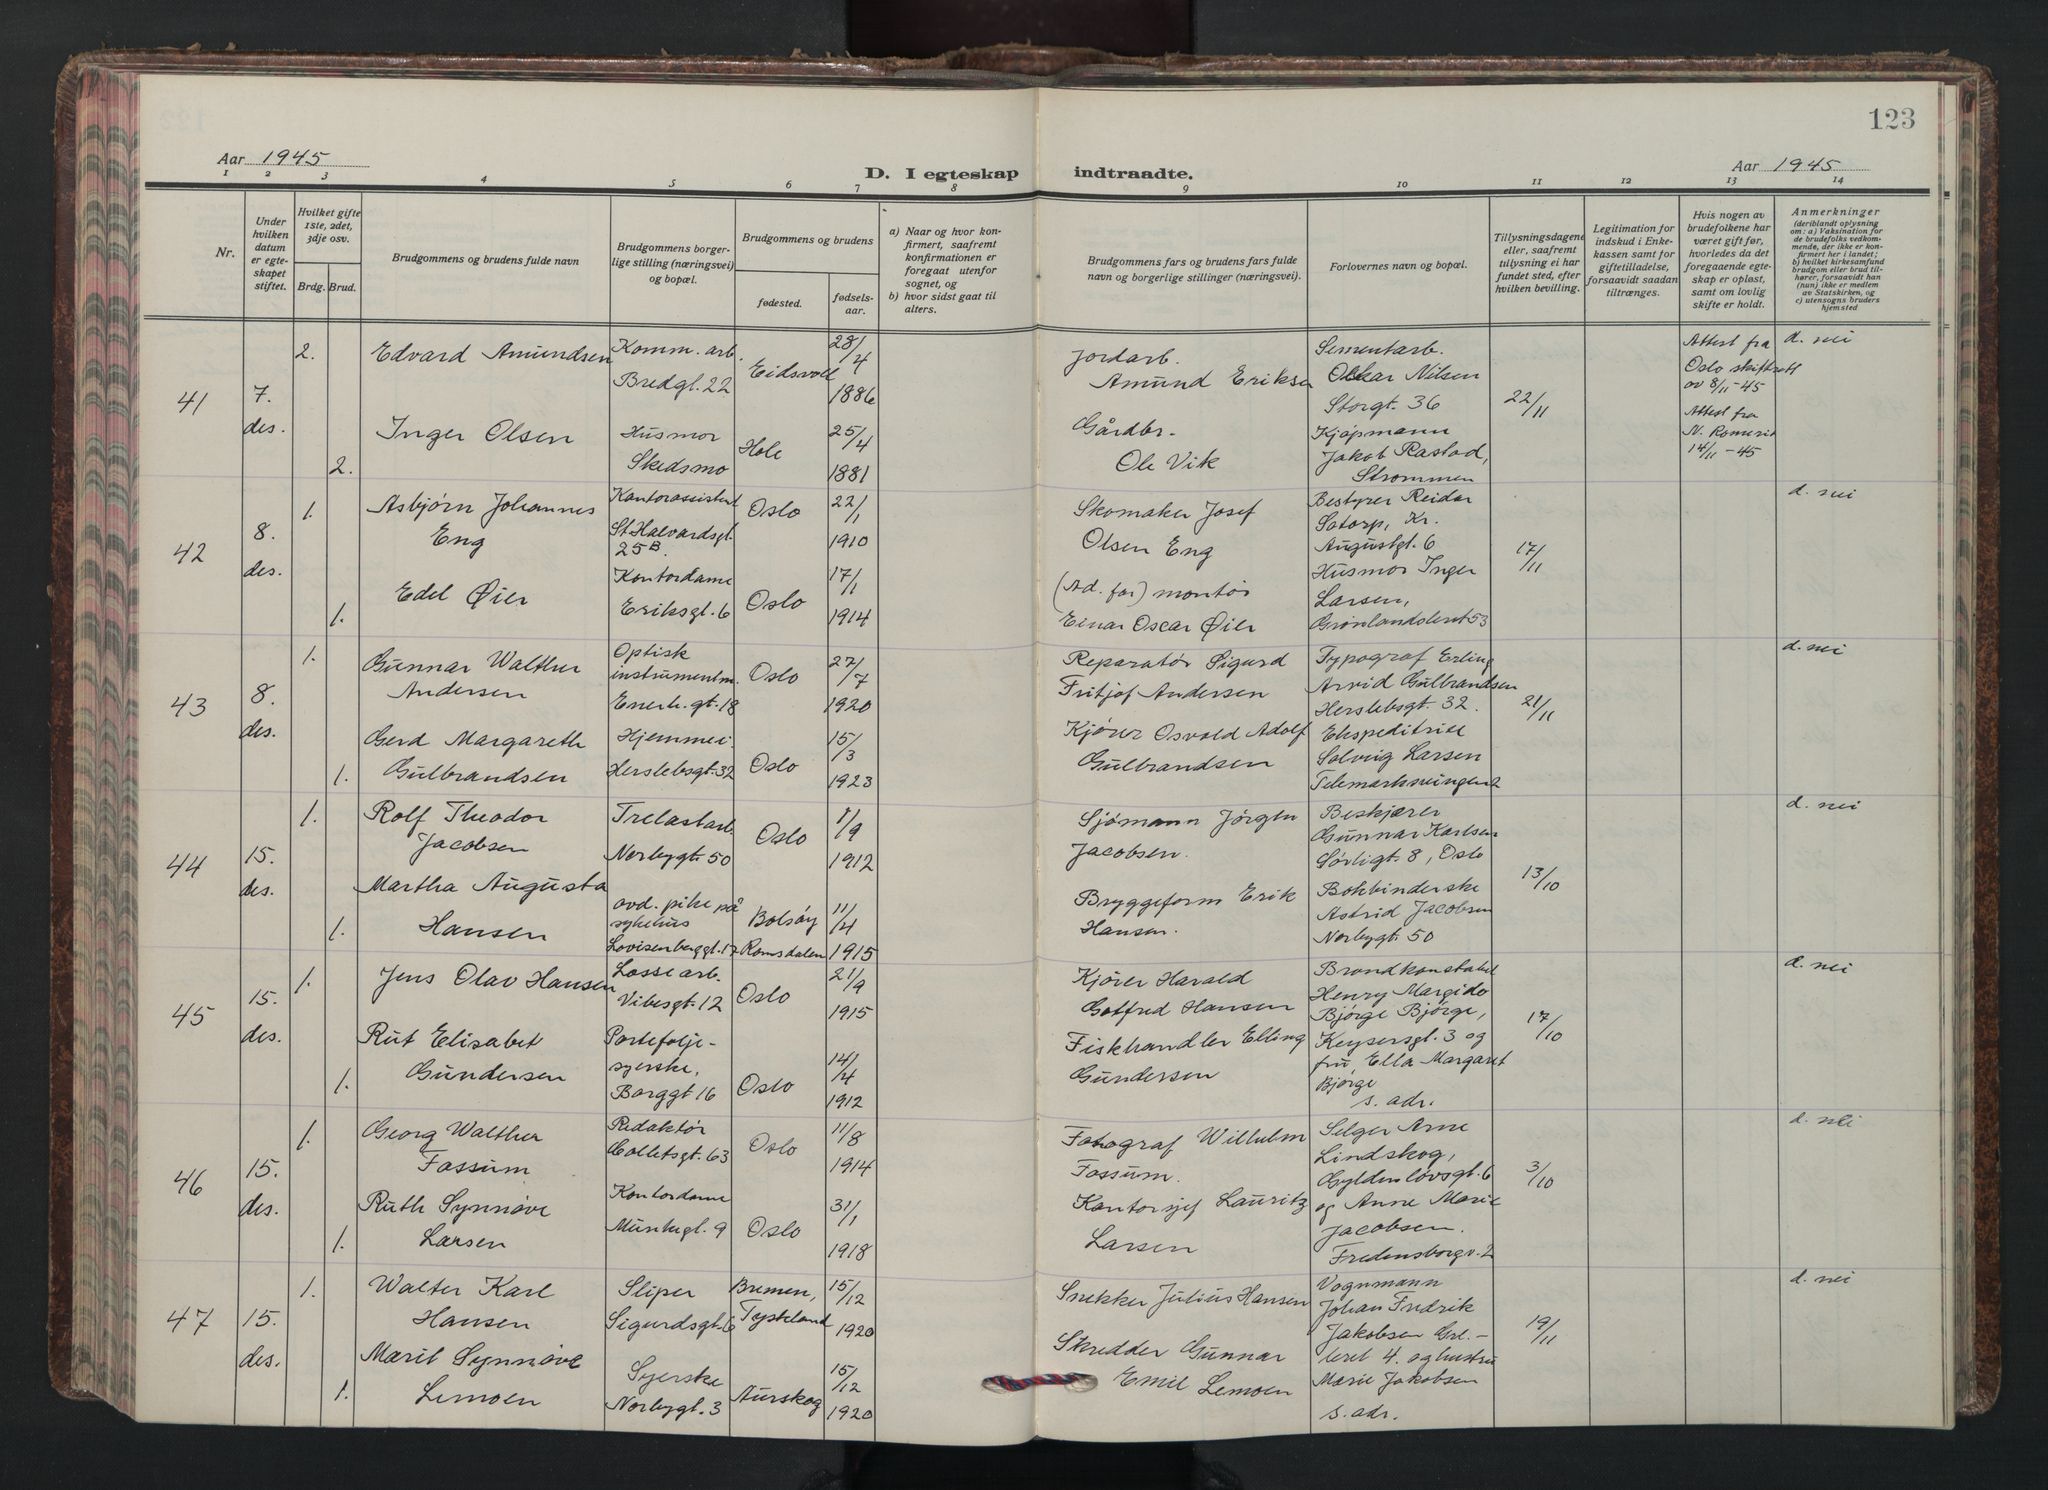 123
Aar 1945
D. I egteskap indtraadte.
Aar 1945
1 2 3 4 5 6 7 8 9 10 11 12 13 14
Nr.
Under hvilken datum er egteskapet stiftet.
Hvilket gifte 1ste, 2det, 3dje osv.
Brdg. Brud.
Brudgommens og brudens fulde navn
Brudgommens borgerlige stilling (næringsvei) og bopæl.
Brudgommens og brudens
fødested.
fødselsaar.
a) Naar og hvor konfirmert, saafremt konfirmationen er foregaat utenfor sognet, og
b) hvor sidst gaat til alters.
Brudgommens fars og brudens fars fulde navn og borgerlige stillinger (næringsvei).
Forlovernes navn og bopæl.
Tillysningsdagene eller, saafremt tillysning ei har fundet sted, efter hvilken bevilling.
Legitimation for indskud i Enkekassen samt for giftetilladelse, forsaavidt saadan tiltrænges.
Hvis nogen av brudefolkene har været gift før, hvorledes da det foregaaende egteskap er opløst, samt om lovlig skifte er holdt.
Anmerkninger
(deriblandt oplysning om: a) Vaksination for de brudefolks vedkommende, der ikke er konfirmert her i landet; b) hvilket kirkesamfund brudgom eller brud tilhører, forsaavidt han (hun) ikke er medlem av Statskirken, og c) utensogns bruders hjemsted
41
7. des.
2.
Edvard Amundsen
Komm. arb.
Bredgt. 22
Eidsvoll
28/4
1886
Jordarb.
Amund Eriksen
Sementarb.
Oskar Nilsen
Storgt. 36
22/11
Attest fra
Oslo skifterett
av 8/11-45
d. nei
2.
Inger Olsen
Husmor
Skedsmo
Hole
25/4
1881
Gårdbr.
Ole Vik
Kjøpmann
Jakob Rastad,
Strømmen
Attest fra
N. Romerik
14/11-45
42
8. des.
1.
Asbjørn Johannes
Eng
Kontorassistent
St Halvardsgt.
25B.
Oslo
22/1
1910
Skomaker Josef
Olsen Eng
Bestyrer Reidar
Satorp, Kr.
Augustgt. 6
17/11
d. nei
1.
Edel Øier
Kontordame
Eriksgt. 6
Oslo
17/1
1914
(Ad. far) montør
Einar Oscar Øier
Husmor Inger
Larsen,
Grønlandsleret 53
43
8. des.
1.
Gunnar Walther
Andersen
Optisk
instrumentm.
Enerh. gt. 18
Oslo
27/7
1920
Reparatør Sigurd
Fritjof Andersen
Typograf Erling
Arvid Gulbrandsen
Herslebsgt. 32.
21/11
d. nei
1.
Gerd Margareth
Gulbrandsen
Hjemmev.
Herslebsgt. 32
Oslo
15/3
1923
Kjører Osvald Adolf
Gulbrandsen
Ekspeditrise
Solveig Larsen
Telemarksvingen 2
44
15. des.
1.
Rolf Theodor
Jacobsen
Trelastarb.
Norbygt. 50
Oslo
1/9
1912
Sjømann Jørgen
Jacobsen.
Beskjærer
Gunnar Karlsen
Sørligt. 8, Oslo
13/10
d. nei
1.
Martha Augusta
Hansen
avd. pike på
sykehus
Lovisenberggt. 17
Bolsøy
Romsdalen
11/4
1915
Bryggeform Erik
Hansen.
Bokbinderske
Astrid Jacobsen
Norbygt. 50
45
15. des.
1.
Jens Olav Hansen
Lossearb.
Vibesgt. 12
Oslo
21/9
1915
Kjører Harald
Gotfred Hansen
Brandkonstabel
Henry Margido
Bjørge Bjørge,
17/10
d. nei
1.
Rut Elisabet
Gundersen
Portefølje-
syerske,
Borggt 16
Oslo
14/4
1912
Fiskhandler Elling
Gundersen
Keysersgt. 3 og
fru, Ella Margaret
Bjørge
s. adr.
46
15. des.
1.
Georg Walther
Fossum
Redaktør
Colletsgt. 63
Oslo
11/8
1914
Fotograf Wilhelm
Fossum.
Selger Arne
Lindskog,
Gyldenløvsgt. 6
3/10
d. nei
1.
Ruth Synnøve
Larsen
Kontordame
Munkegt. 9
Oslo
31/1
1918
Kontorsjef Lauritz
Larsen
og Anne Marie
Jacobsen.
Fredensborgv. 2
47
15. des.
1.
Walter Karl
Hansen
Sliper
Sigurdsgt. 6
Bremen,
Tyskland
15/12
1920
Snekker Julius Hansen
Vognmann
Johan Fredrik
Jakobsen Grl.-
19/11
d. nei
1.
Marit Synnøve
Lemoen
Syerske
Norbygt. 3
Aurskog
15/12
1920
Skredder Gunnar
Emil Lemoen
leret 4. og hustru
Marie Jakobsen
s. adr.